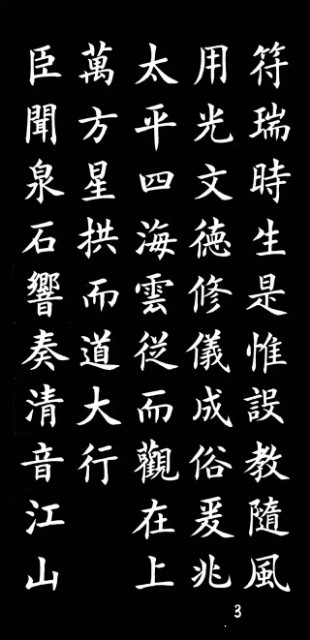 符瑞時生是惟設教隨風
用光文德修儀成俗爰兆
太平四海雲從而觀在上
萬方星拱而道大行
臣聞泉石響奏清音江山
3